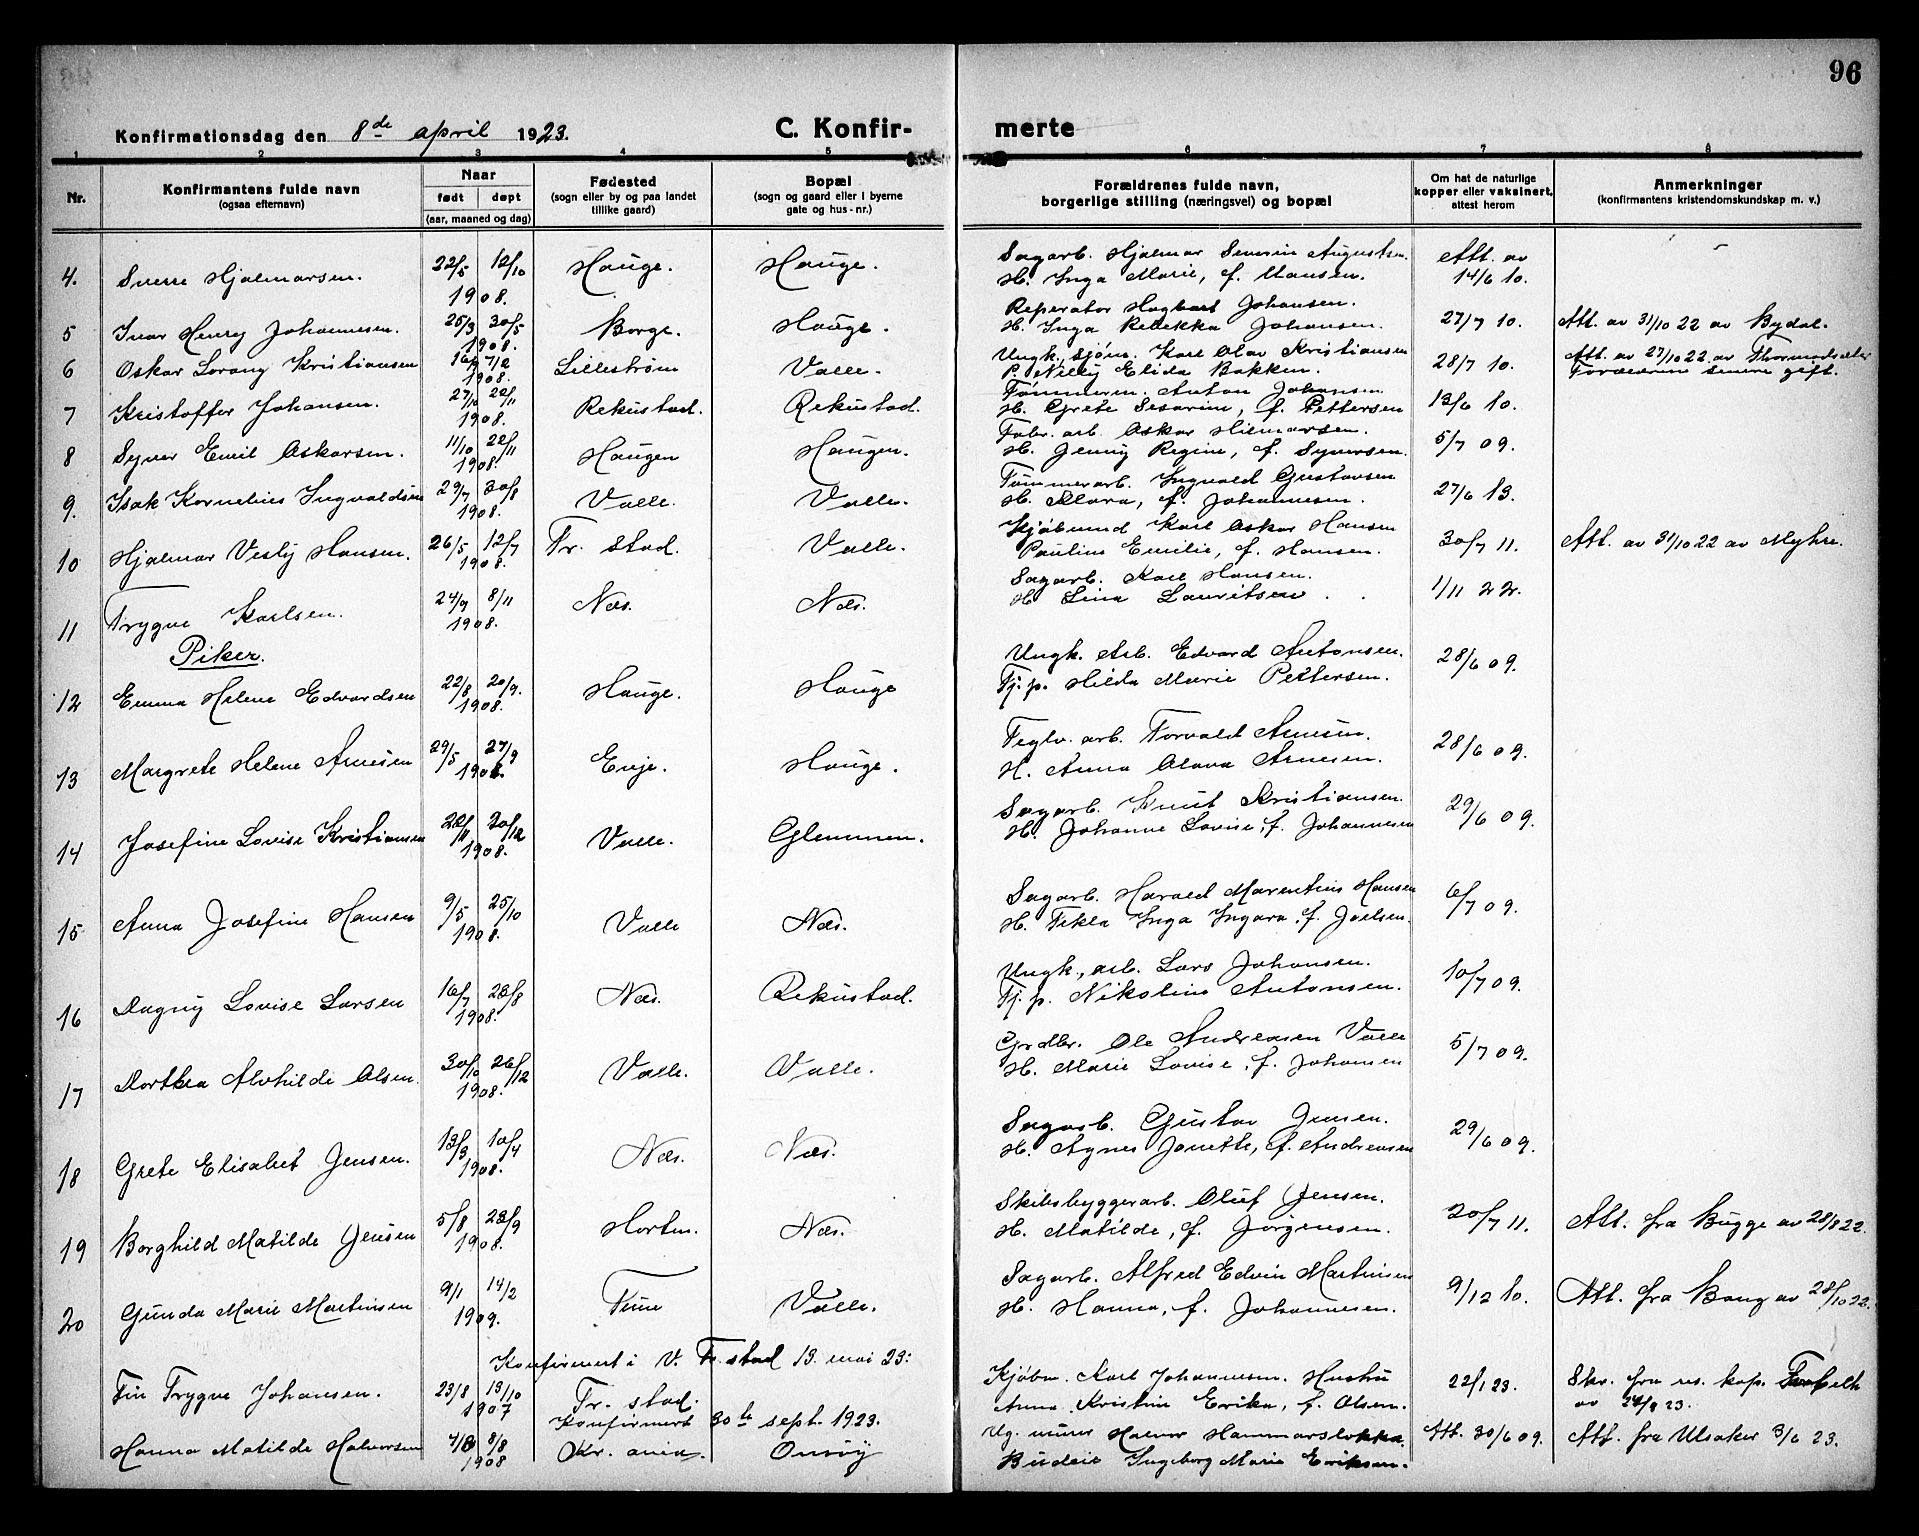 96
Konfirmationsdag den 8de april 1923. C. Konfir- merte
1 2 3 4 5 6 7 8
Nr. Konfirmantens fulde navn (ogsaa efternavn) Naar født døpt (aar, maaned og dag) Fødested (sogn eller by og paa landet tillike gaard) Bopæl (sogn og gaard eller i byerne gate og hus-nr.) Forældrenes fulde navn, borgerlige stilling (næringsvei) og bopæl Om hat de naturlige kopper eller vaksinert, attest herom Anmerkninger (konfirmantens kristendomskundskap m. v.)
4. Sverre Hjalmarsen. 22/5 12/10 1908. Hauge. Hauge. Sagarb. Hjalmar Severin Augustsen. Att. av
H. Inga Marie, f. Hansen. 14/6 10.
5 Ivar Henry Johannesen. 25/3 30/5 1908. Borge. Hauge. Reperatør Hagbart Johansen. 27/7 10. Att. av 31/10 22 av Bydal.
H. Inga Rebekka Johansen.
6 Oskar Lorang Kristiansen 7/2 1908. Lillestrøm Valle. Ungk. sjøm. Karl Olav Kristiansen 28/7 10. Att. av 27/10 22 av
P. Nelly Elida Bakken. Forældrene senere gift.
7 Kristoffer Johansen. 27/10 22/11 1908. Rekustad. Rekustad. Tømmerm. Anton Johansen. 13/6 10.
H. Grete Sesarine, f. Pettersen
8 Syver Emil Oskarsen. 11/10 22/11 1908. Haugen Haugen. Fabr. arb. Oskar Hilmarsen. 5/7 09.
H. Jenny Regine, f. Syversen.
9. Isak Kornelius Ingvaldsen 29/7 30/8 1908. Valle. Valle. Tømmerarb. Ingvald Gustavsen 27/6 13.
H. Klara, f. Johannesen.
10 Hjalmar Vesly Hansen. 26/5 12/7 1908. Fr. stad. Valle. Kjøbmand Karl Oskar Hansen 30/7 11. Att. av 31/10 22 av Myhre.
Pauline Emilie, f. Hansen.
11 Trygve Karlsen. 24/9 8/11 1908. Næs. Næs. Sagarb. Karl Hansen. 1/11 22.
H. Lina Lauritsen
Piker.
12 Emma Helene Edvardsen 22/8 20/9. 1908. Hauge. Hauge Ungk. Arb. Edvard Antonsen. 28/6 09.
Tj.p. Hilda Marie Pettersen.
13 Margrete Helene Arnesen 29/5 27/9 1908. Enje. Hauge. Teglv. arb. Torvald Arnesen. 28/6 09.
H. Anna Olava Arnesen.
14 Josefine Lovise Kristiansen 22/11 20/12 1908. Valle. Glemmen. Sagarb. Knut Kristiansen. 29/6 09.
H. Johanne Lovise, f. Johannesen
15 Anna Josefine Hansen 9/5 25/10 1908. Valle Næs. Sagarb. Harald Marentius Hansen 6/7 09.
H. Tekla Inga Ingara, f. Joelsen.
16 Dagny Lovise Larsen 16/7 23/8 1908. Næs. Rekustad. Ungk., arb. Lars Johansen. 10/7 09.
Tj. p. Nikoline Antonsen.
17 Dorthea Alvhilde Olsen. 30/10 26/12 1908. Valle. Valle. Grdbr. Ole Andreasen Valle 5/7 09.
H. Marie Lovise, f. Johansen
18 Grete Elisabet Jensen. 13/3 10/4 1908. Næs. Næs. Sagarb. Gustav Jensen. 29/6 09.
H. Agnes Janette, f. Andreasen
19 Borghild Matilde Jensen 5/8 23/9 1908. Horten. Næs. Skibsbyggerarb. Oluf Jensen. 20/7 11. Att. fra Bugge av 28/8 22.
H. Matilde, f. Jørgensen.
20 Gunda Marie Martinsen 9/1 14/2 1909. Tune Valle. Sagarb. Alfred Edvin Martinsen 9/12 10. Att. fra Bang av 28/10 22.
H. Hanna, f. Johannesen.
Konfirmert i V. Fr. stad 13. mai 23:
Fin Trygve Johansen. 23/8 13/10 1907 Fr. stad. Kjøbm. Karl Johannesen. 22/1 23. Skr. fra res. kap.
Anna Kristine Erika, f. Olsen. av 24/8 23.
Konfirmert 30te sept. 1923.
Hanna Matilde Halvorsen 4/8 8/8 1908 Kr. ania. Onsøy Ug. murer Halvor Hammarslokka. Att. 30/6 09. Att. fra Ulsaker 3/6 23.
Budeie Ingeborg Marie Eriksen.